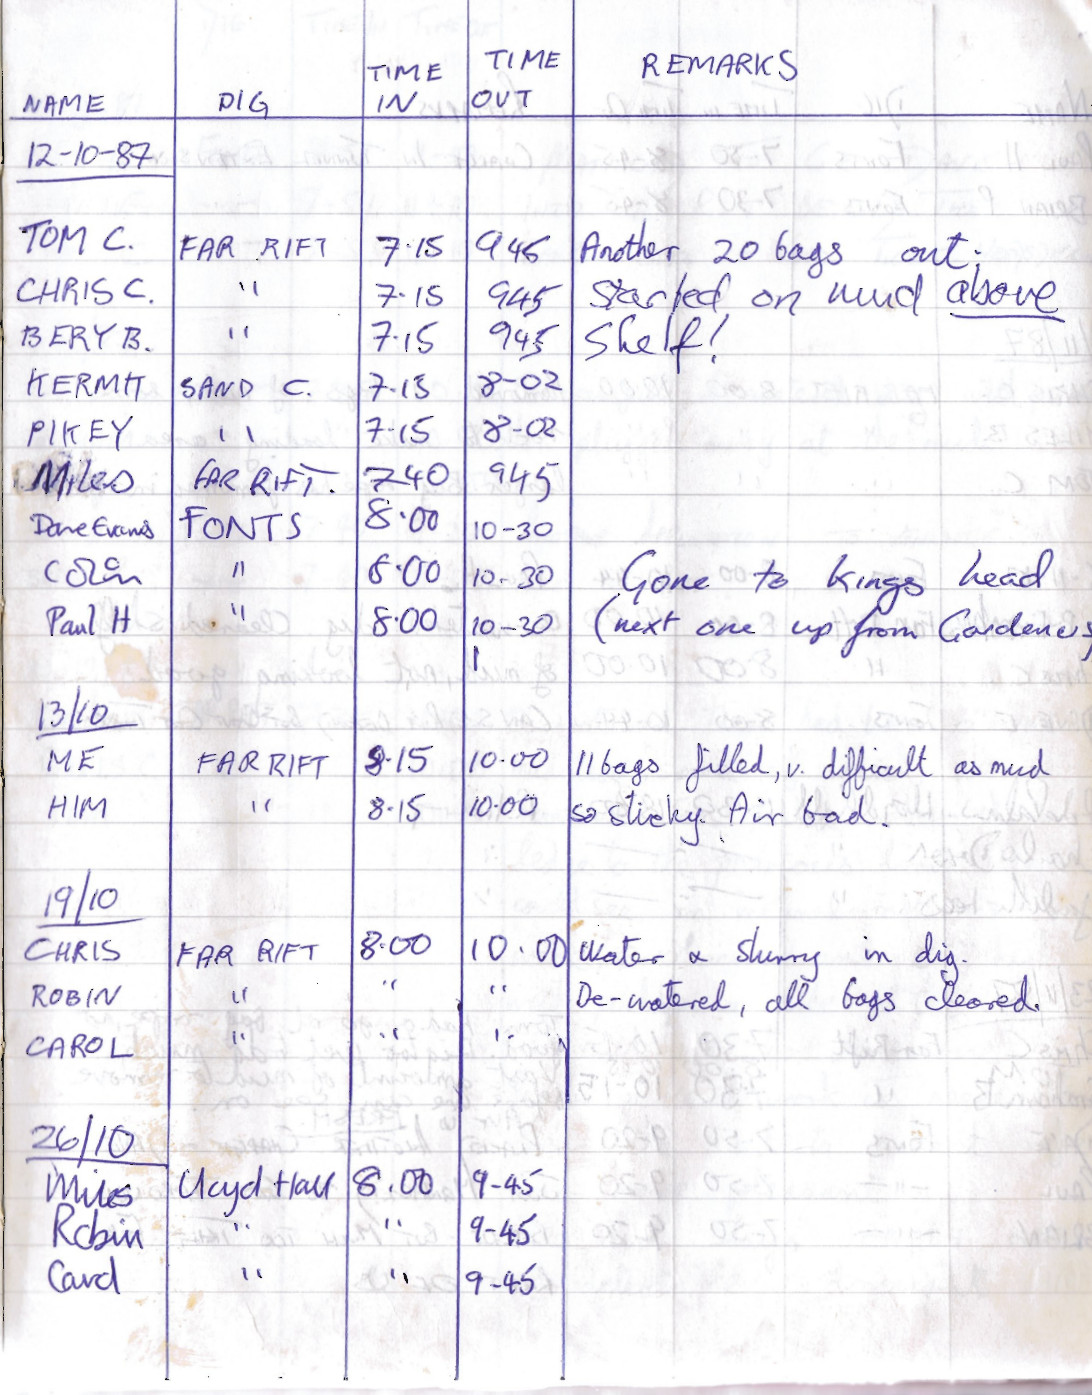 NAME DIG TIME IN TIME OUT REMARKS
12-10-87
TOM C. FAR RIFT 7.15 945 Another 20 bags out:
CHRIS C. " 7.15 945 started on mud above
BERY B. " 7.15 945 shelf!
KERMIT SAND C. 7.15 8-02
PIKEY " 7-15 8-02
Miles FAR RIFT. 740 945
Dave Evans FONTS 8.00 10-30
Colin " 8.00 10-30 Gone to Kings head
Paul H " 8.00 10-30 (next one up from Gardeners
13/10
ME FAR RIFT 8.15 10.00 11 bags filled, v. difficult as mud
HIM " 8.15 10.00 so sticky. Air bad.
19/10
CHRIS FAR RIFT 8.00 10.00 Water & slurry in dig.
ROBIN " " " De-watered, all bags cleared.
CAROL " " "
26/10
Miles Lloyd Hall 8.00 9-45
Robin " " 9-45
Carol " " 9-45